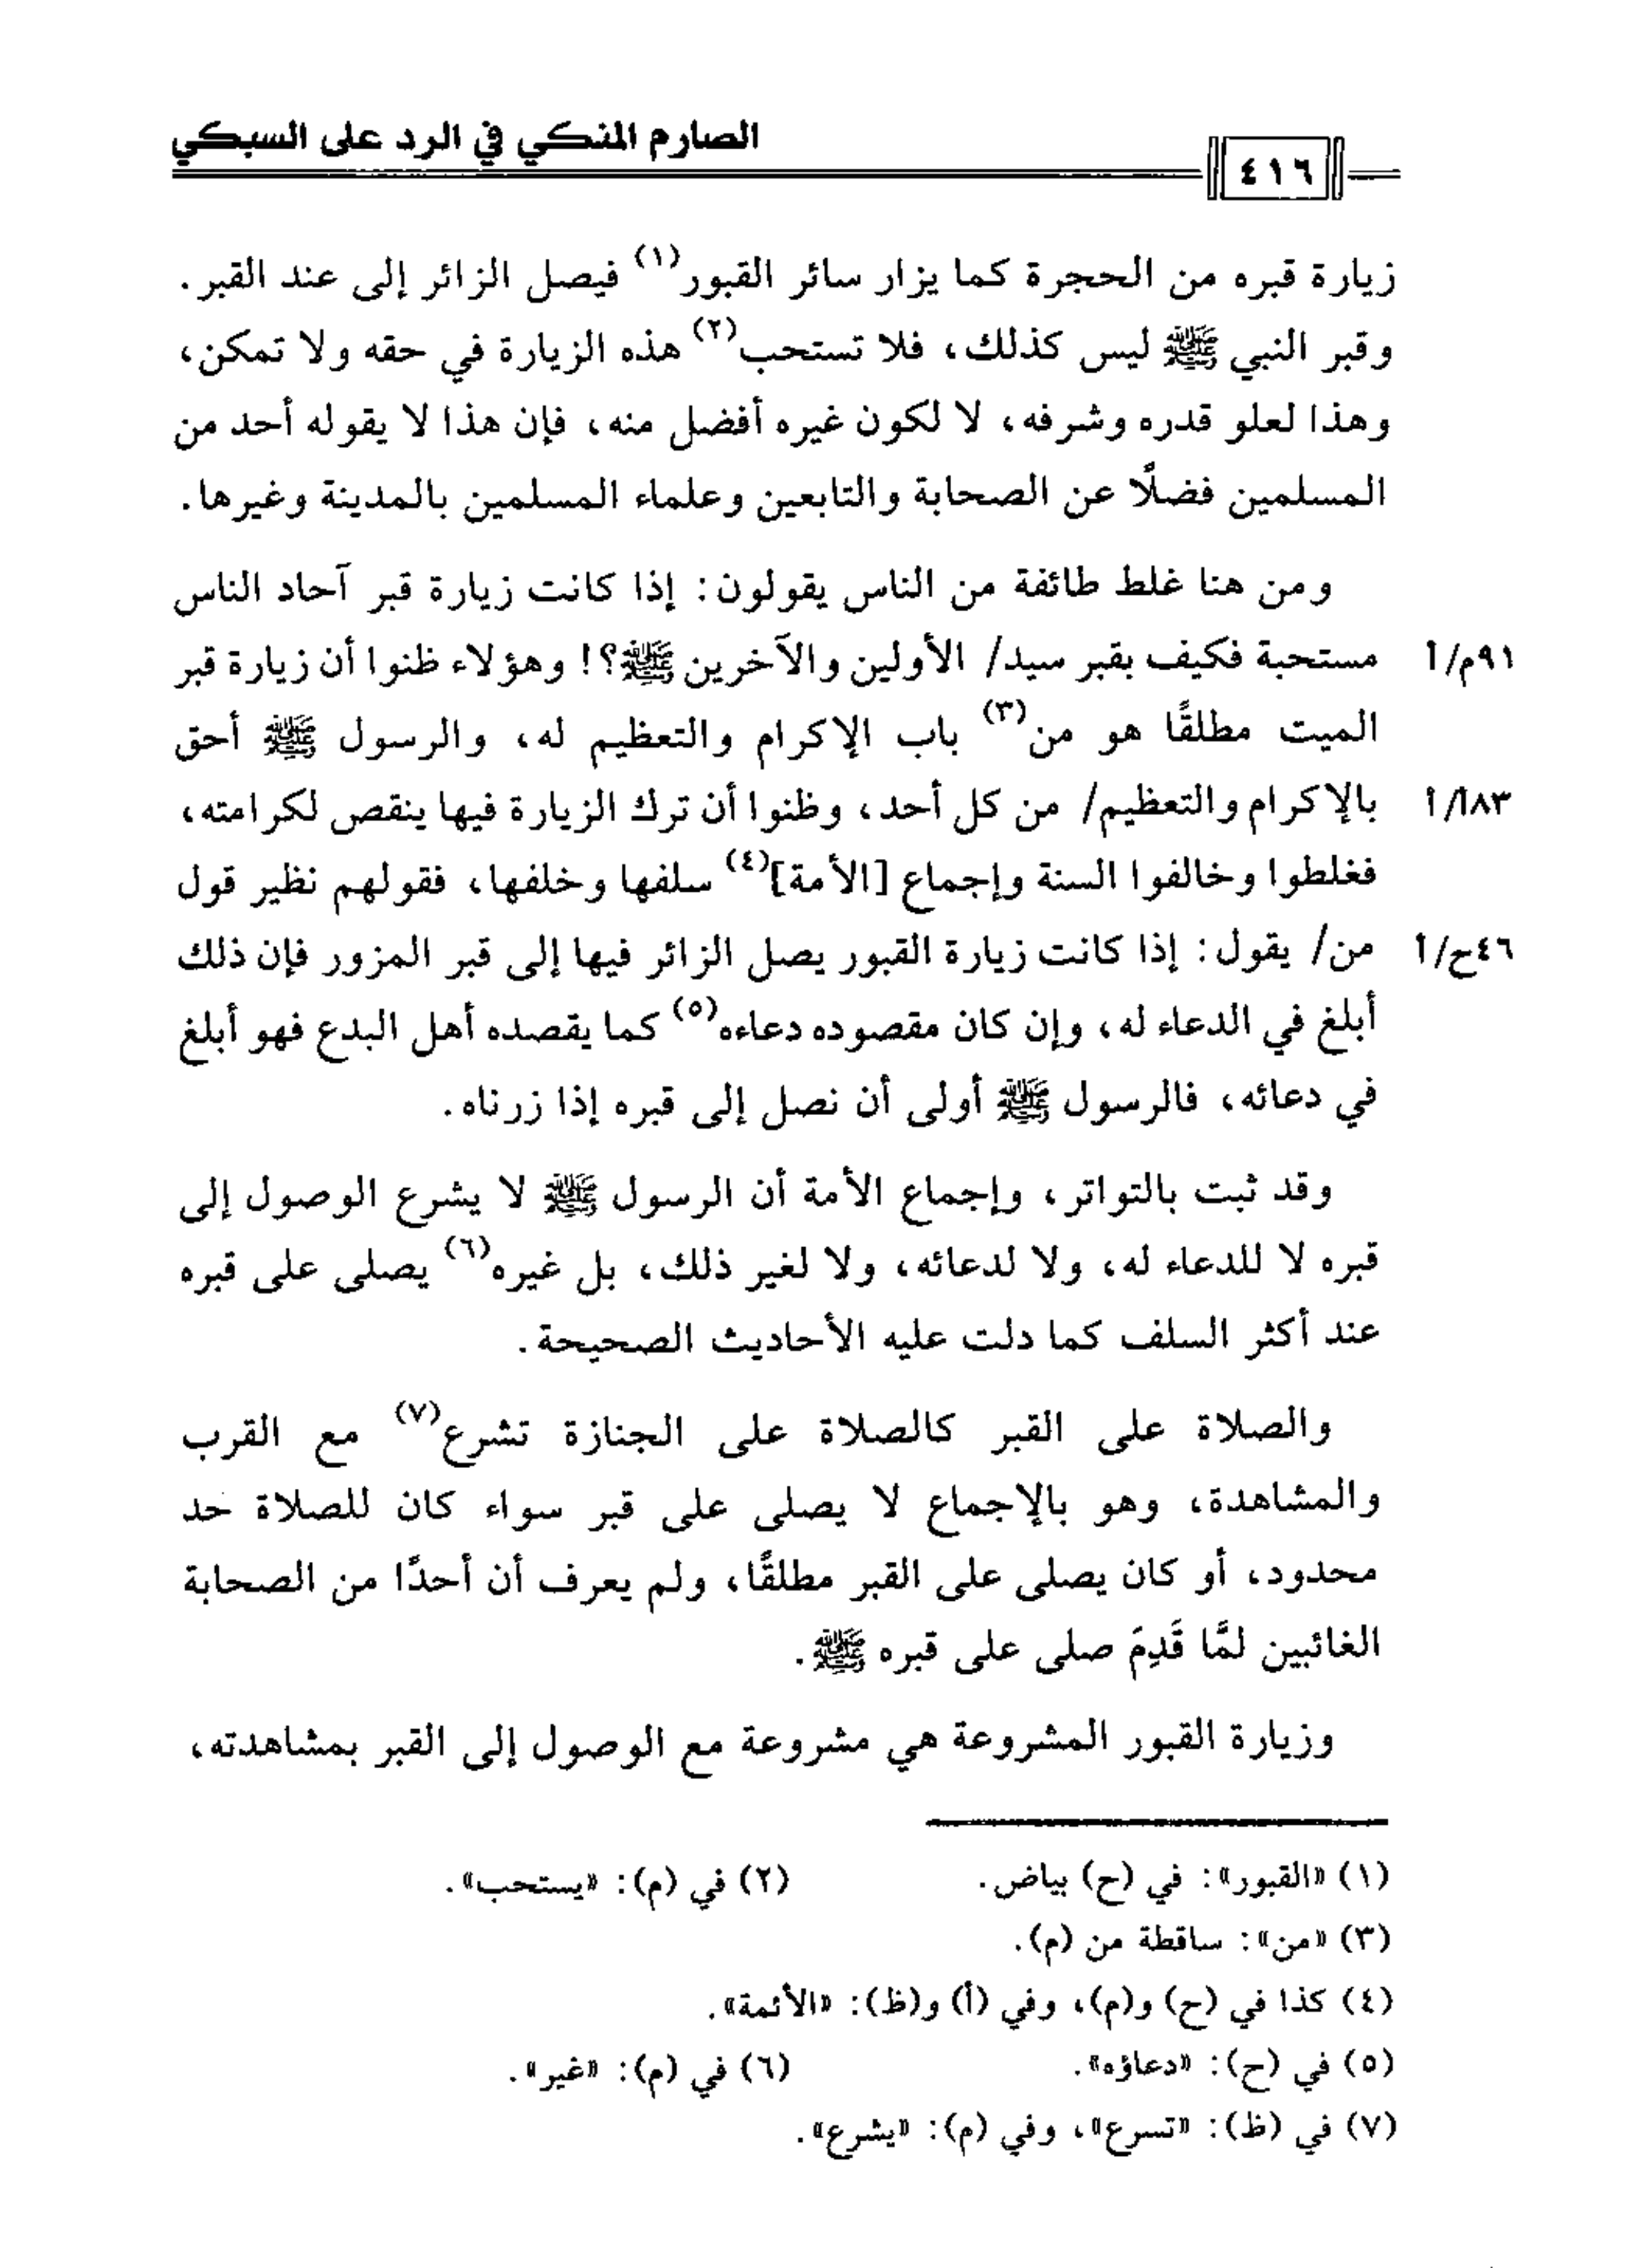 الصارم المنكي في الرد على السبكي
٤١٦
زيارة قبره من الحجرة كما يزار سائر القبور(١) فيصل الزائر إلى عند القبر.
وقبر النبي ﷺ ليس كذلك، فلا تستحب(٢) هذه الزيارة في حقه ولا تمكن،
وهذا لعلو قدره وشرفه، لا لكون غيره أفضل منه، فإن هذا لا يقوله أحد من
المسلمين فضلًا عن الصحابة والتابعين وعلماء المسلمين بالمدينة وغيرها.
ومن هنا غلط طائفة من الناس يقولون: إذا كانت زيارة قبر آحاد الناس
٩١م/أ مستحبة فكيف بقبر سيد/ الأولين والآخرين ﷺ؟! وهؤلاء ظنوا أن زيارة قبر
الميت مطلقًا هو من(٣) باب الإكرام والتعظيم له، والرسول ﷺ أحق
٨٣أ/أ بالإكرام والتعظيم/ من كل أحد، وظنوا أن ترك الزيارة فيها ينقص لكرامته،
فغلطوا وخالفوا السنة وإجماع [الأمة](٤) سلفها وخلفها، فقولهم نظير قول
٤٦ح/أ من/ يقول: إذا كانت زيارة القبور يصل الزائر فيها إلى قبر المزور فإن ذلك
أبلغ في الدعاء له، وإن كان مقصوده دعاءه(٥) كما يقصده أهل البدع فهو أبلغ
في دعائه، فالرسول ﷺ أولى أن نصل إلى قبره إذا زرناه.
وقد ثبت بالتواتر، وإجماع الأمة أن الرسول ﷺ لا يشرع الوصول إلى
قبره لا للدعاء له، ولا لدعائه، ولا لغير ذلك، بل غيره(٦) يصلى على قبره
عند أكثر السلف كما دلت عليه الأحاديث الصحيحة.
والصلاة على القبر كالصلاة على الجنازة تشرع(٧) مع القرب
والمشاهدة، وهو بالإجماع لا يصلى على قبر سواء كان للصلاة حد
محدود، أو كان يصلى على القبر مطلقًا، ولم يعرف أن أحدًا من الصحابة
الغائبين لمَّا قَدِمَ صلى على قبره ﷺ.
وزيارة القبور المشروعة هي مشروعة مع الوصول إلى القبر بمشاهدته،
(١) «القبور»: في (ح) بياض. (٢) في (م): «يستحب».
(٣) «من»: ساقطة من (م).
(٤) كذا في (ح) و(م)، وفي (أ) و(ظ): «الأئمة».
(٥) في (ح): «دعاؤه». (٦) في (م): «غير».
(٧) في (ظ): «تسرع»، وفي (م): «يشرع».